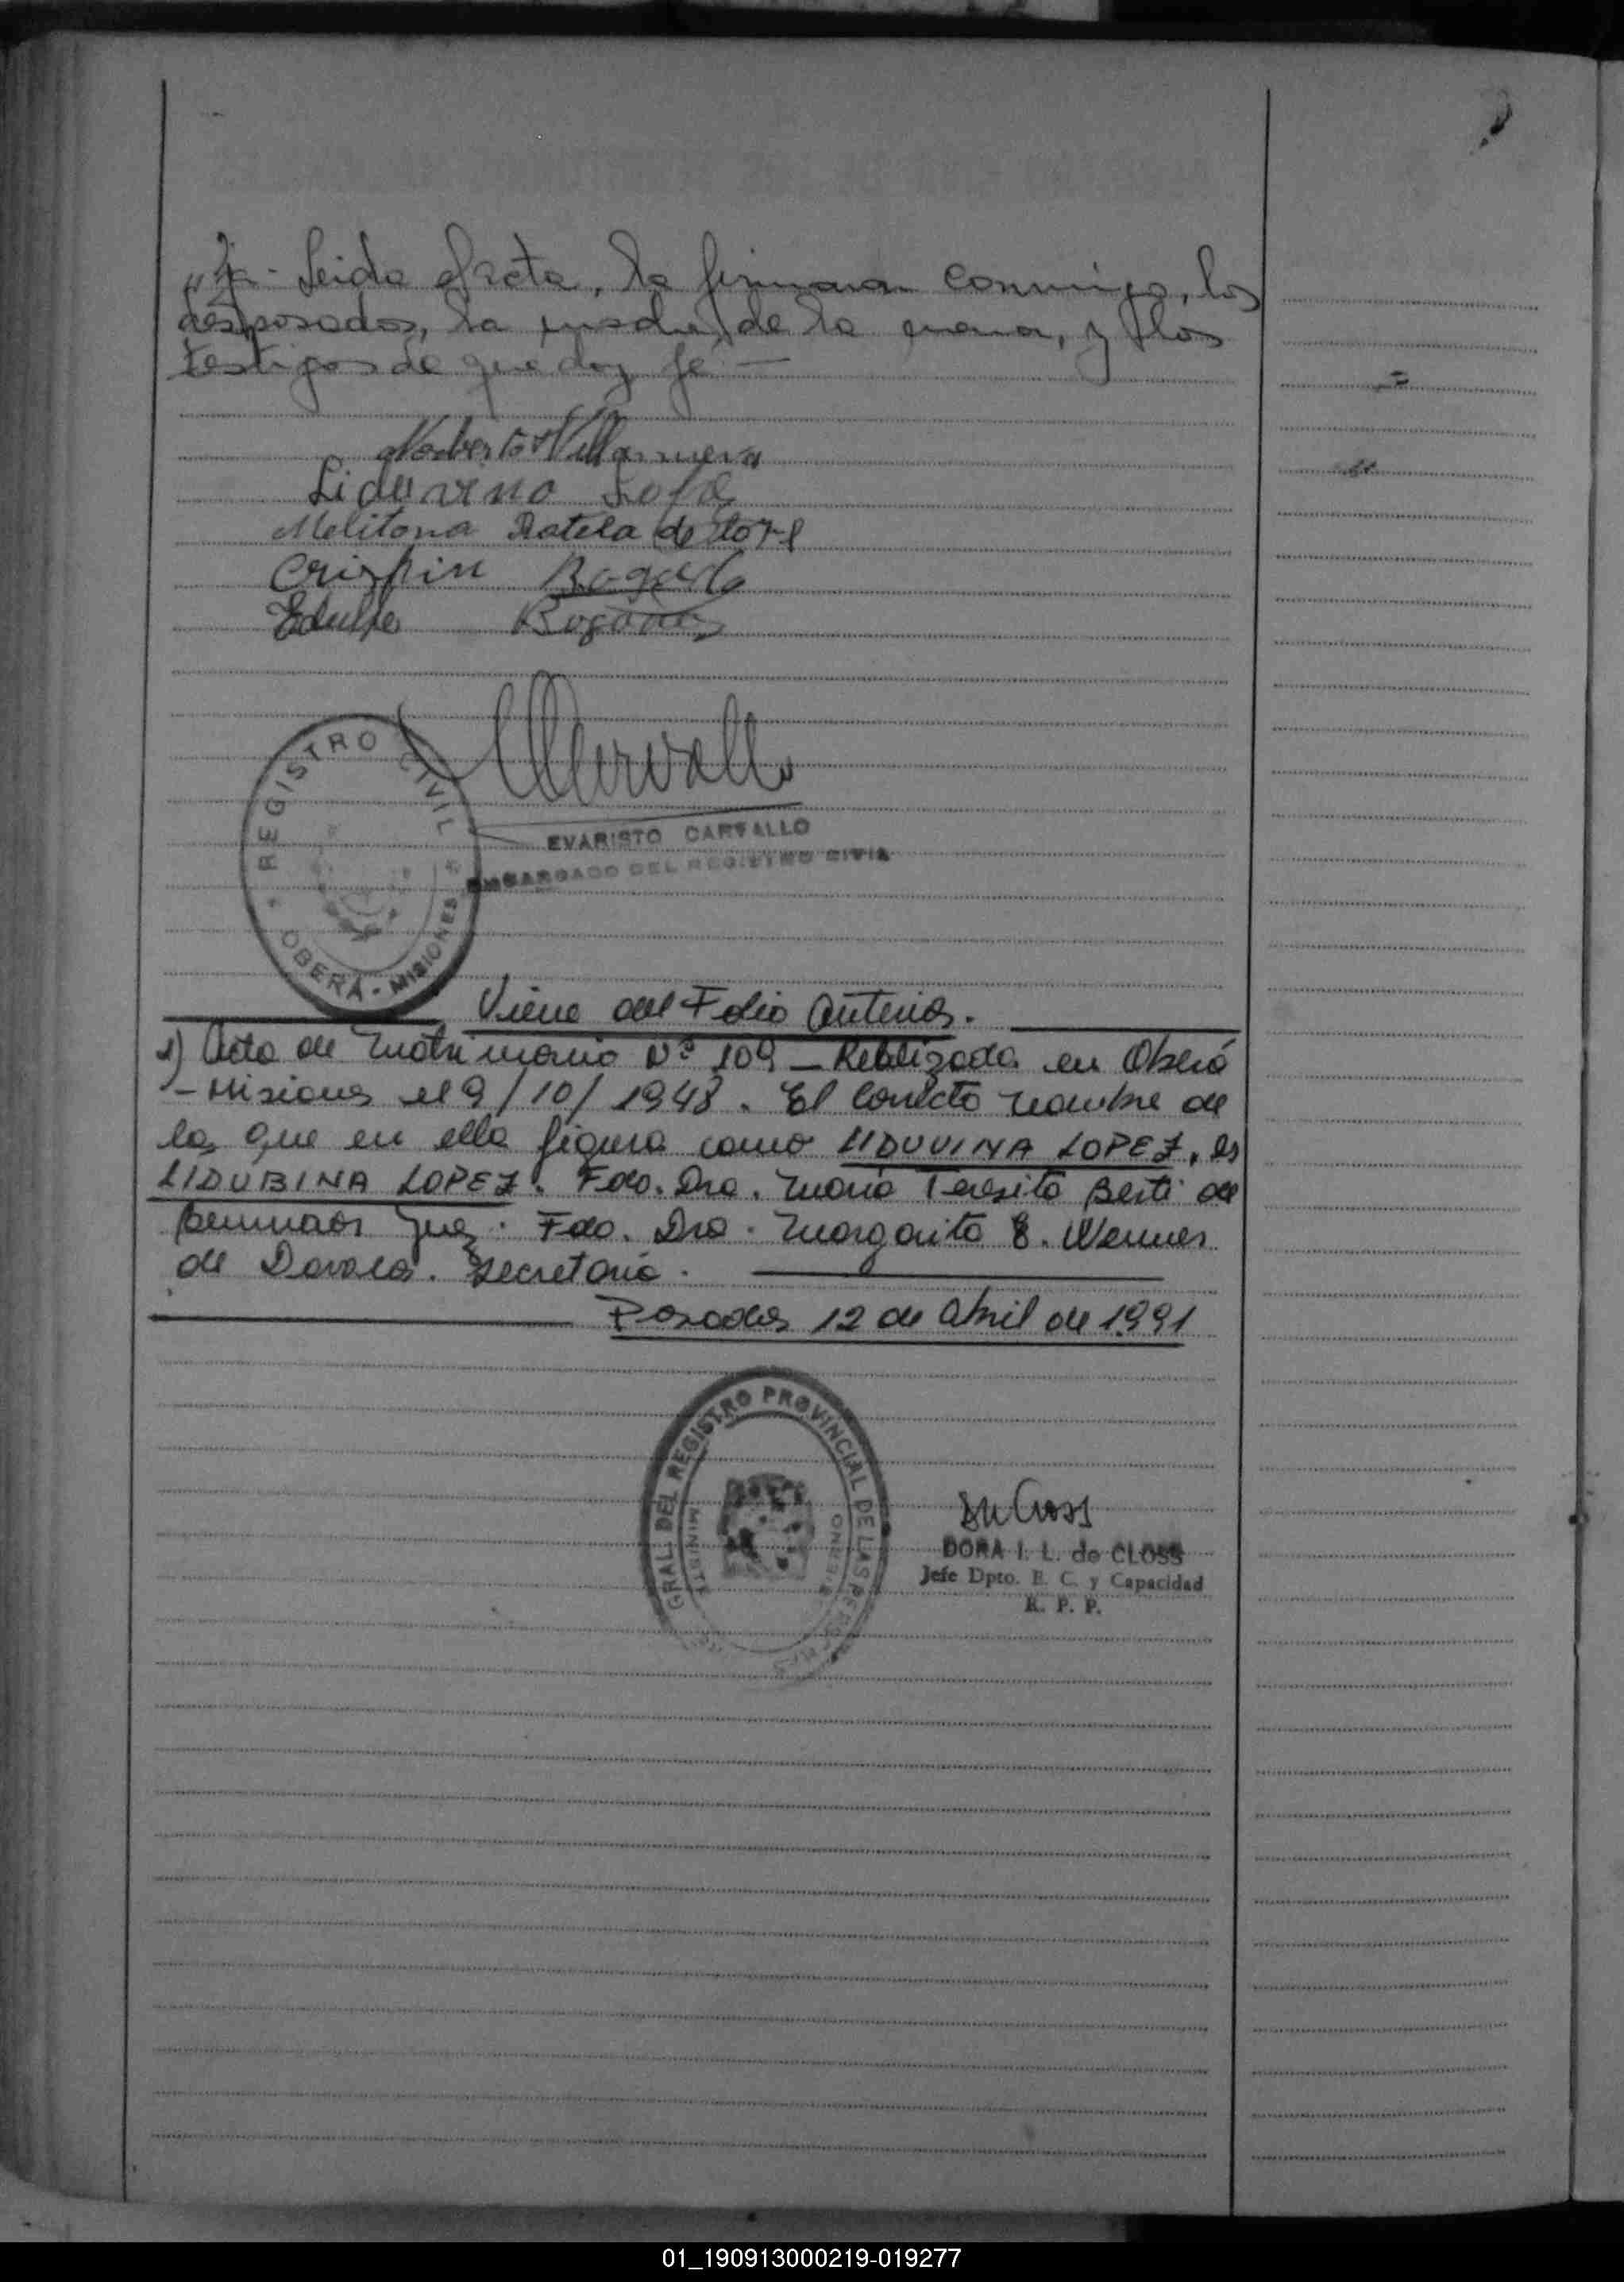 Leida el acta, la firmaron conmigo, los
desposados, la madre de la menor, y los
testigos de que doy fe -
Norberto Villanueva
Melitona de
Crispin
EVARISTO CARVALLO
ENCARGADO DEL REGISTRO CIVIL
REGISTRO CIVIL
* OBERÁ - MISIONES *
Viene del Folio Anterior.
1) Acta de Matrimonio Nº 109 - Realizada en Oberá
- Misiones el 9/10/1948. El correcto nombre de
la que en ella figura como LIDUVINA LOPEZ, es
LIDUBINA LOPEZ. Fdo. Dra. Maria Teresita Berti de
Juez. Fdo. Dra. Margarita E. Wermer
de Davalos. Secretaria.
Posadas 12 de abril de 1991
GRAL. DEL REGISTRO PROVINCIAL DE LAS PERSONAS
DORA I. L. de CLOSS
Jefe Dpto. E. C. y Capacidad
R. P. P.
01_190913000219-019277